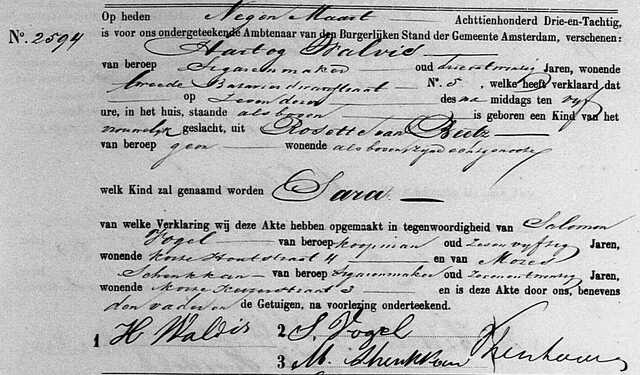 Nº. 2594
Op heden Negen Maart Achttienhonderd Drie-en-Tachtig,
is voor ons ondergeteekende Ambtenaar van den Burgerlijken Stand der Gemeente Amsterdam, verschenen:
Hartog Walvis
van beroep Sigarenmaker oud drieentwintig Jaren, wonende
tweede Batavierdwarsstraat Nº. 5, welke heeft verklaard dat
op Zevendezer des na middags ten vijf
ure, in het huis, staande als boven is geboren een Kind van het
vrouwelijk geslacht, uit Rosette van Beetz
van beroep geen wonende als boven zijne echtgenoote
welk Kind zal genaamd worden Sara
van welke Verklaring wij deze Akte hebben opgemaakt in tegenwoordigheid van Salomon
Vogel van beroep koopman oud Zevenvijftig Jaren,
wonende Korte Houtstraat 4 en van Mozes
Schenkkan van beroep Sigarenmaker oud Jaren,
wonende Korte Keizerstraat 3 en is deze Akte door ons, benevens
den vader en de Getuigen, na voorlezing onderteekend.
1 H Walvis 2 S. Vogel
3 M. Shenkkan